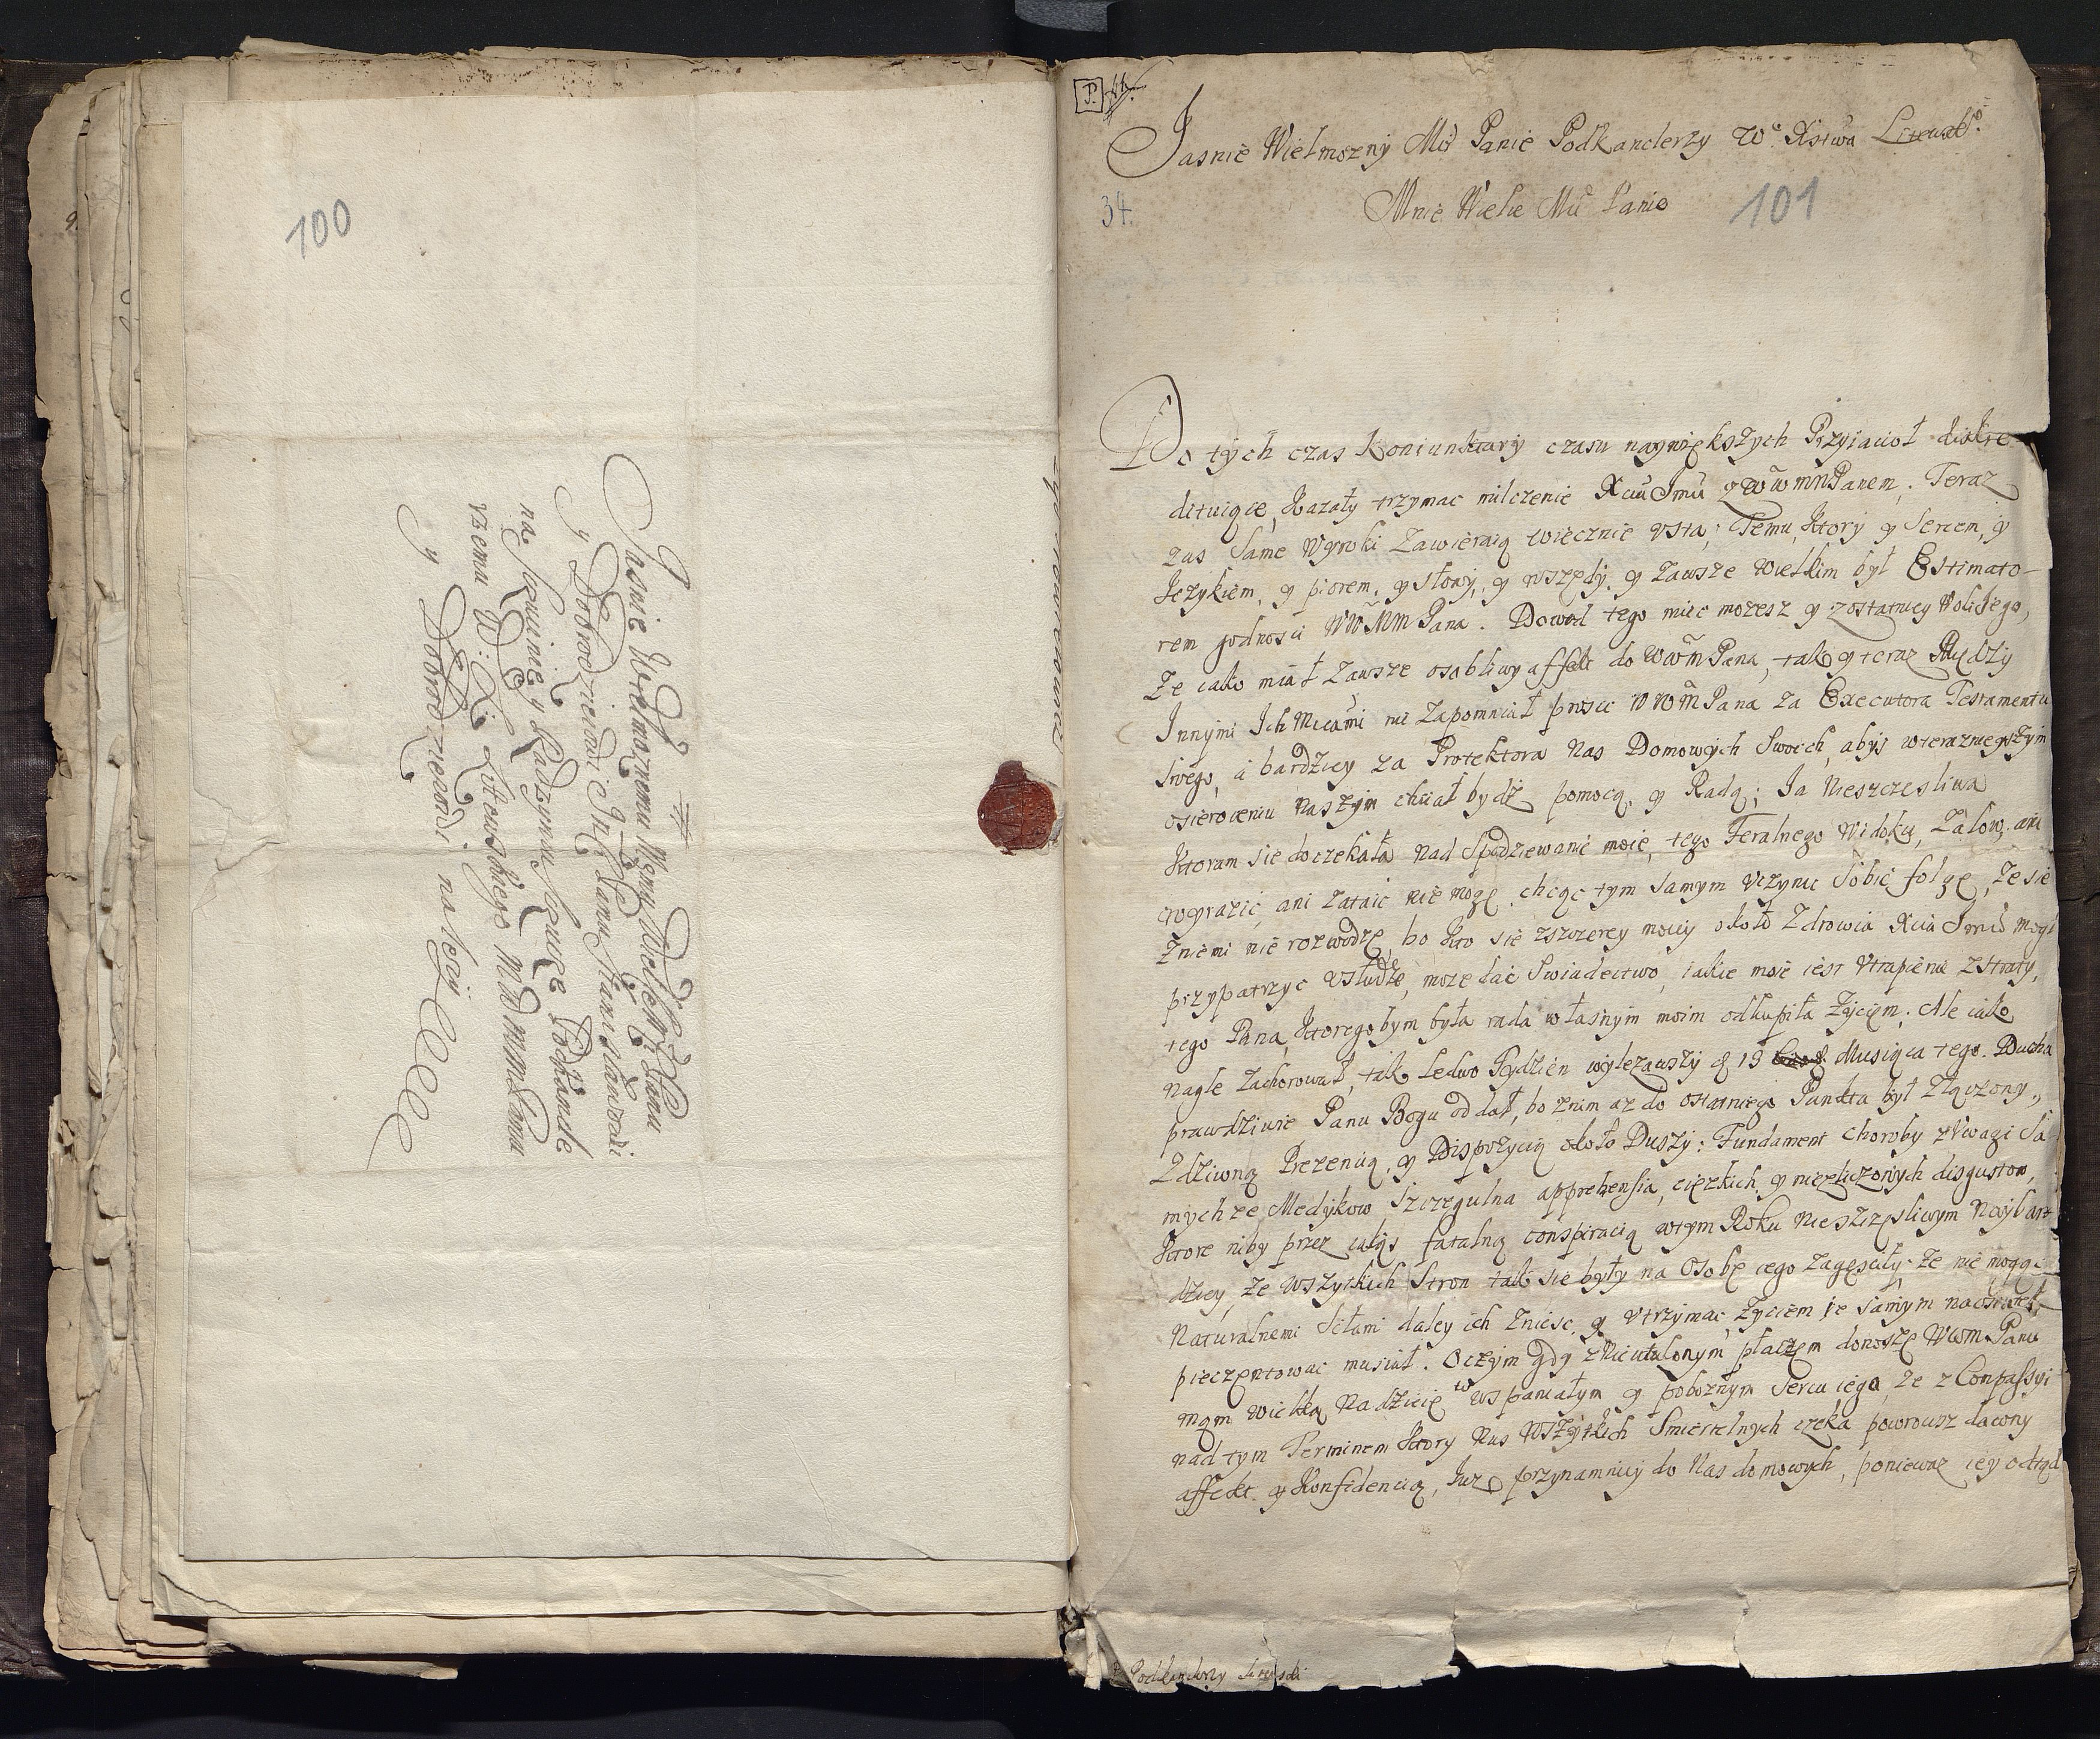 100
Jasnie Wielmoznemu Memu Wielce Panu
y Dobrodzieiowi Jm Panu Stanisławowi
na Szczuczinie y Radzyniu Szczuce Podkancle
rzemu W: X: Litewskiego WM MM Panu
y Dobrodzieiowi. nalezy
P.
Jasnie Wielmozny Mcı Panie Podkanclerzy Wo Xstwa Litewsko
34.
Mnie Wielce Mcı Panie
101
Do tych czas Koniunktury czasu naywiększych Przyiacioł diskre
dituiące, kazały trzymac milczenie Xciu Jmci z WWMMPanem. Teraz
zas same Wyroki zawieraią wiecznie vsta; Temu, ktory y Sercem, y
Językiem, y piorem, y słowy, y wszędy, y zawsze wielkim był Estimato-
rem godnosci WWMM Pana. Dowod tego miec mozesz y z ostatniey Woli Jego,
Ze iako miał zawsze osobliwy affekt do WWM Pana, tak y teraz Między
Innymi Ich Mciami nie zapomniał prosic WWM Pana za Executora Testamentu
swego, a bardziey za Protektora Nas Domowych swoich, abys wteraznieyszym
osieroceniu naszym chciał bydz pomocą, y Radą; Ja Nieszczesliwa
ktoram sie doczekała nad Spodziewanie moie, tego Feralnego widoku, Zalow ani
wyrazic, ani zataic nie mogę, chcąc tym samym vczynic sobie folgę, ze sie
zniemi nie rozwodzę, bo kto sie zszczerey moiey około Zdrowia Xcia Jmci mogł
przypatrzyc vsłudze, moze dac Swiadectwo, iakie moie iest vtrapienie zstraty,
tego Pana, ktoregobym była rada własnym moim odkupiła Zyciem. Ale iako
nagle zachorował, tak ledwo Tydzien wylezawszy d 19 Miesiąca tego. Ducha
prawdziwie Panu Bogu oddał, bo znim az do ostatniego Punkta był złączony,
Zdziwną Prezencią, y Dispozycią około Duszy: Fundament choroby z Vwagi Sa
mych ze Medykow Szczegulna apprehensia, cięzkich y niezliczonych disgustow,
ktore niby przez iakąs fatalną conspiracią wtym Roku Nieszczęsliwym Naybar
dziey, ze wszystkich Stron tak sie były na Osobę iego zagęsciły. Ze nie mogąc
Naturalnemi Siłami daley ich zniesc, y vtrzymac, Zyciem ie samym
pieczętowac musiał. Oczym gdy z Nieutulonym płaczem donoszę WWM Panu
mąm wielką Nadzieię w wspaniałym y poboznym Sercu iego, ze z Compassyi
nad tym Terminem ktory Nas Wszytkich Smiertelnych czeka powrocisz dawny
affekt y Konfidencią, Juz przynamniey do Nas domowych, poniewaz iey odtąd
Podkanclerzy